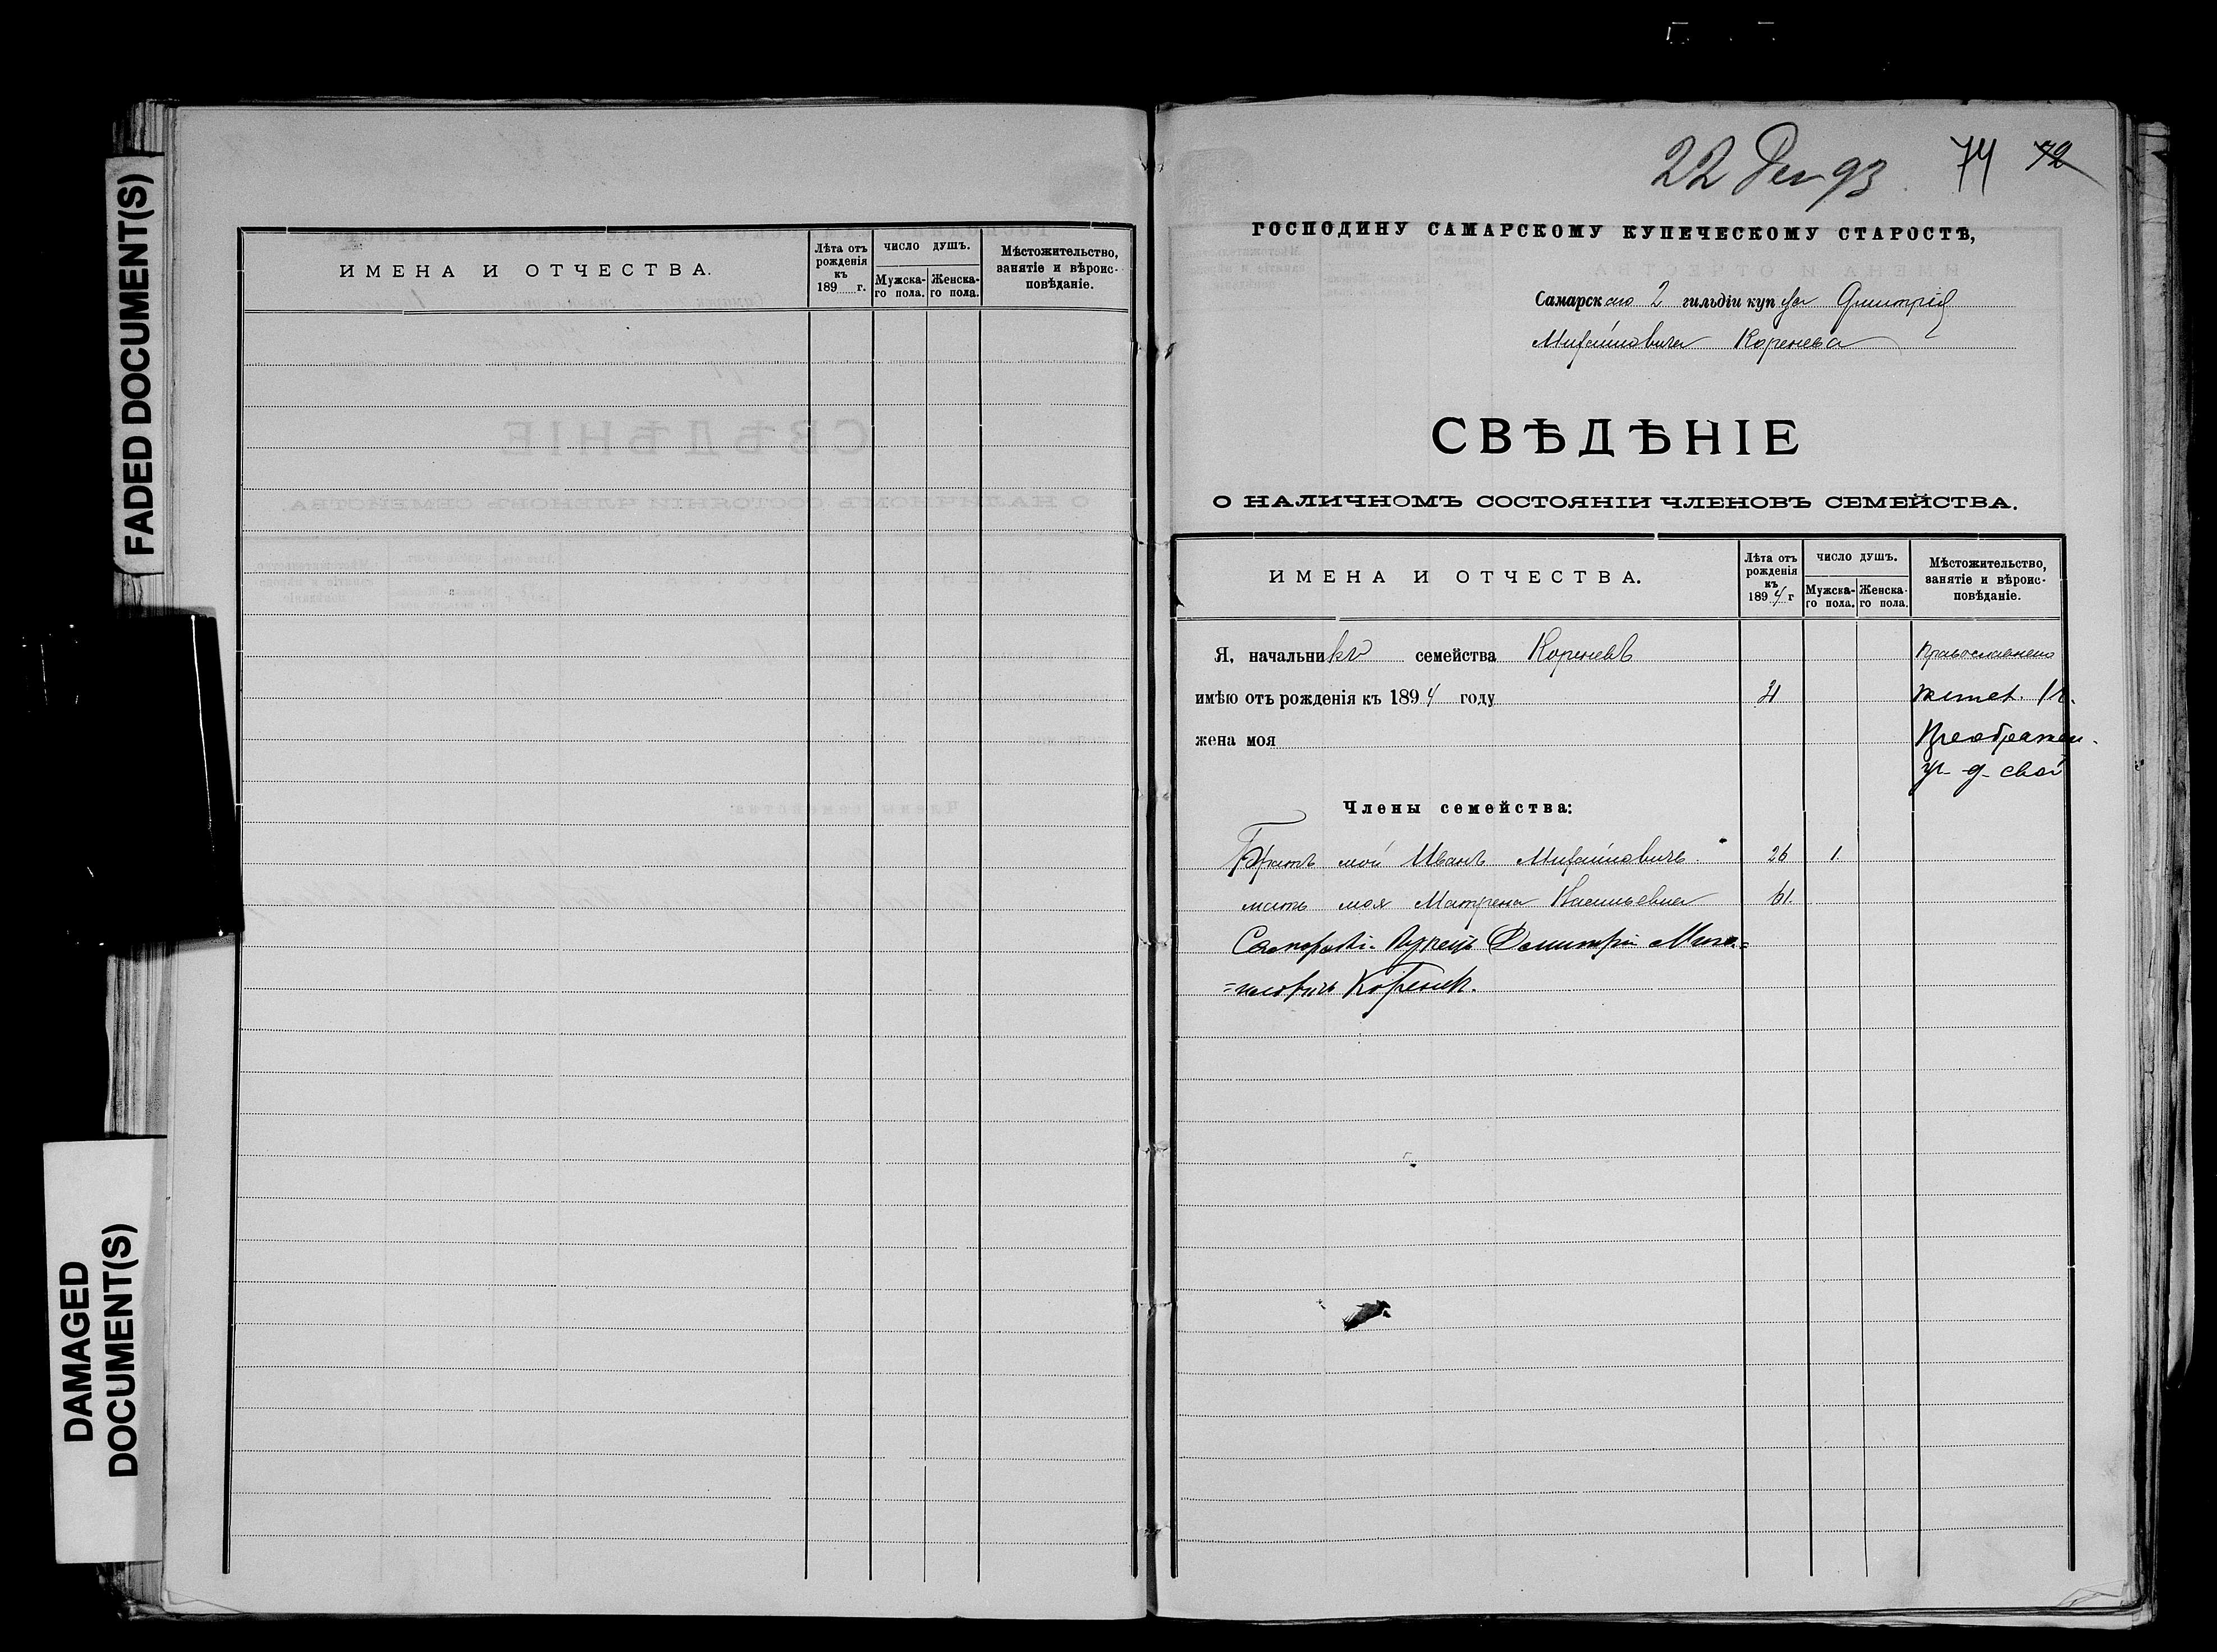 FADED DOCUMENT(S)
DAMAGED
DOCUMENT(S)
ИМЕНА И ОТЧЕСТВА.
Лѣта отъ рожденія къ 189 г.
число душъ.
Мужска-го пола.
Женска-го пола.
Мѣстожительство, занятіе и вѣроис-повѣданіе.
22 Дек 93 74 72
ГОСПОДИНУ САМАРСКОМУ КУПЕЧЕСКОМУ СТАРОСТѢ,
Самарскаго 2 гильдіи купца Дмитрія
Михайловича Коренева
СВѢДѢНІЕ
О НАЛИЧНОМЪ СОСТОЯНІИ ЧЛЕНОВЪ СЕМЕЙСТВА.
ИМЕНА И ОТЧЕСТВА.
Лѣта отъ рожденія къ 1894 г
число душъ.
Мужска-го пола.
Женска-го пола.
Мѣстожительство, занятіе и вѣроис-повѣданіе.
Я, начальникъ семейства Кореневъ Православнаго
имѣю отъ рожденія къ 1894 году 21 жител. 1 ч.
жена моя Преображен.
ул. д. свой
Члены семейства:
Братъ мой Иванъ Михайловичъ 26 1.
мать моя Матрена Васильевна 61.
купецъ Дмитрій Миха=
=иловичъ Коренев.